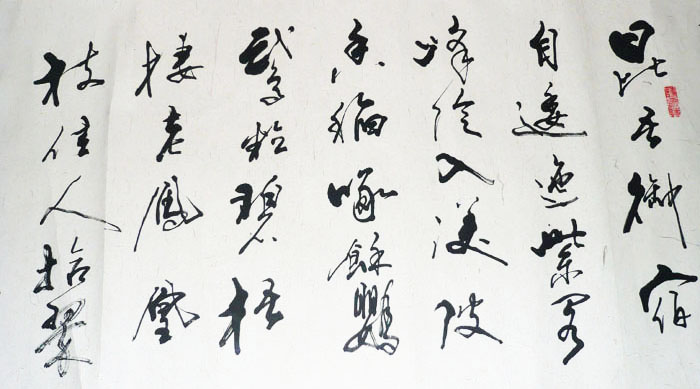 昆吾御宿
自逶迤紫閣
峰陰入渼陂
香稻啄餘鸚
鵡粒碧梧
棲老鳳凰
枝佳人拾翠